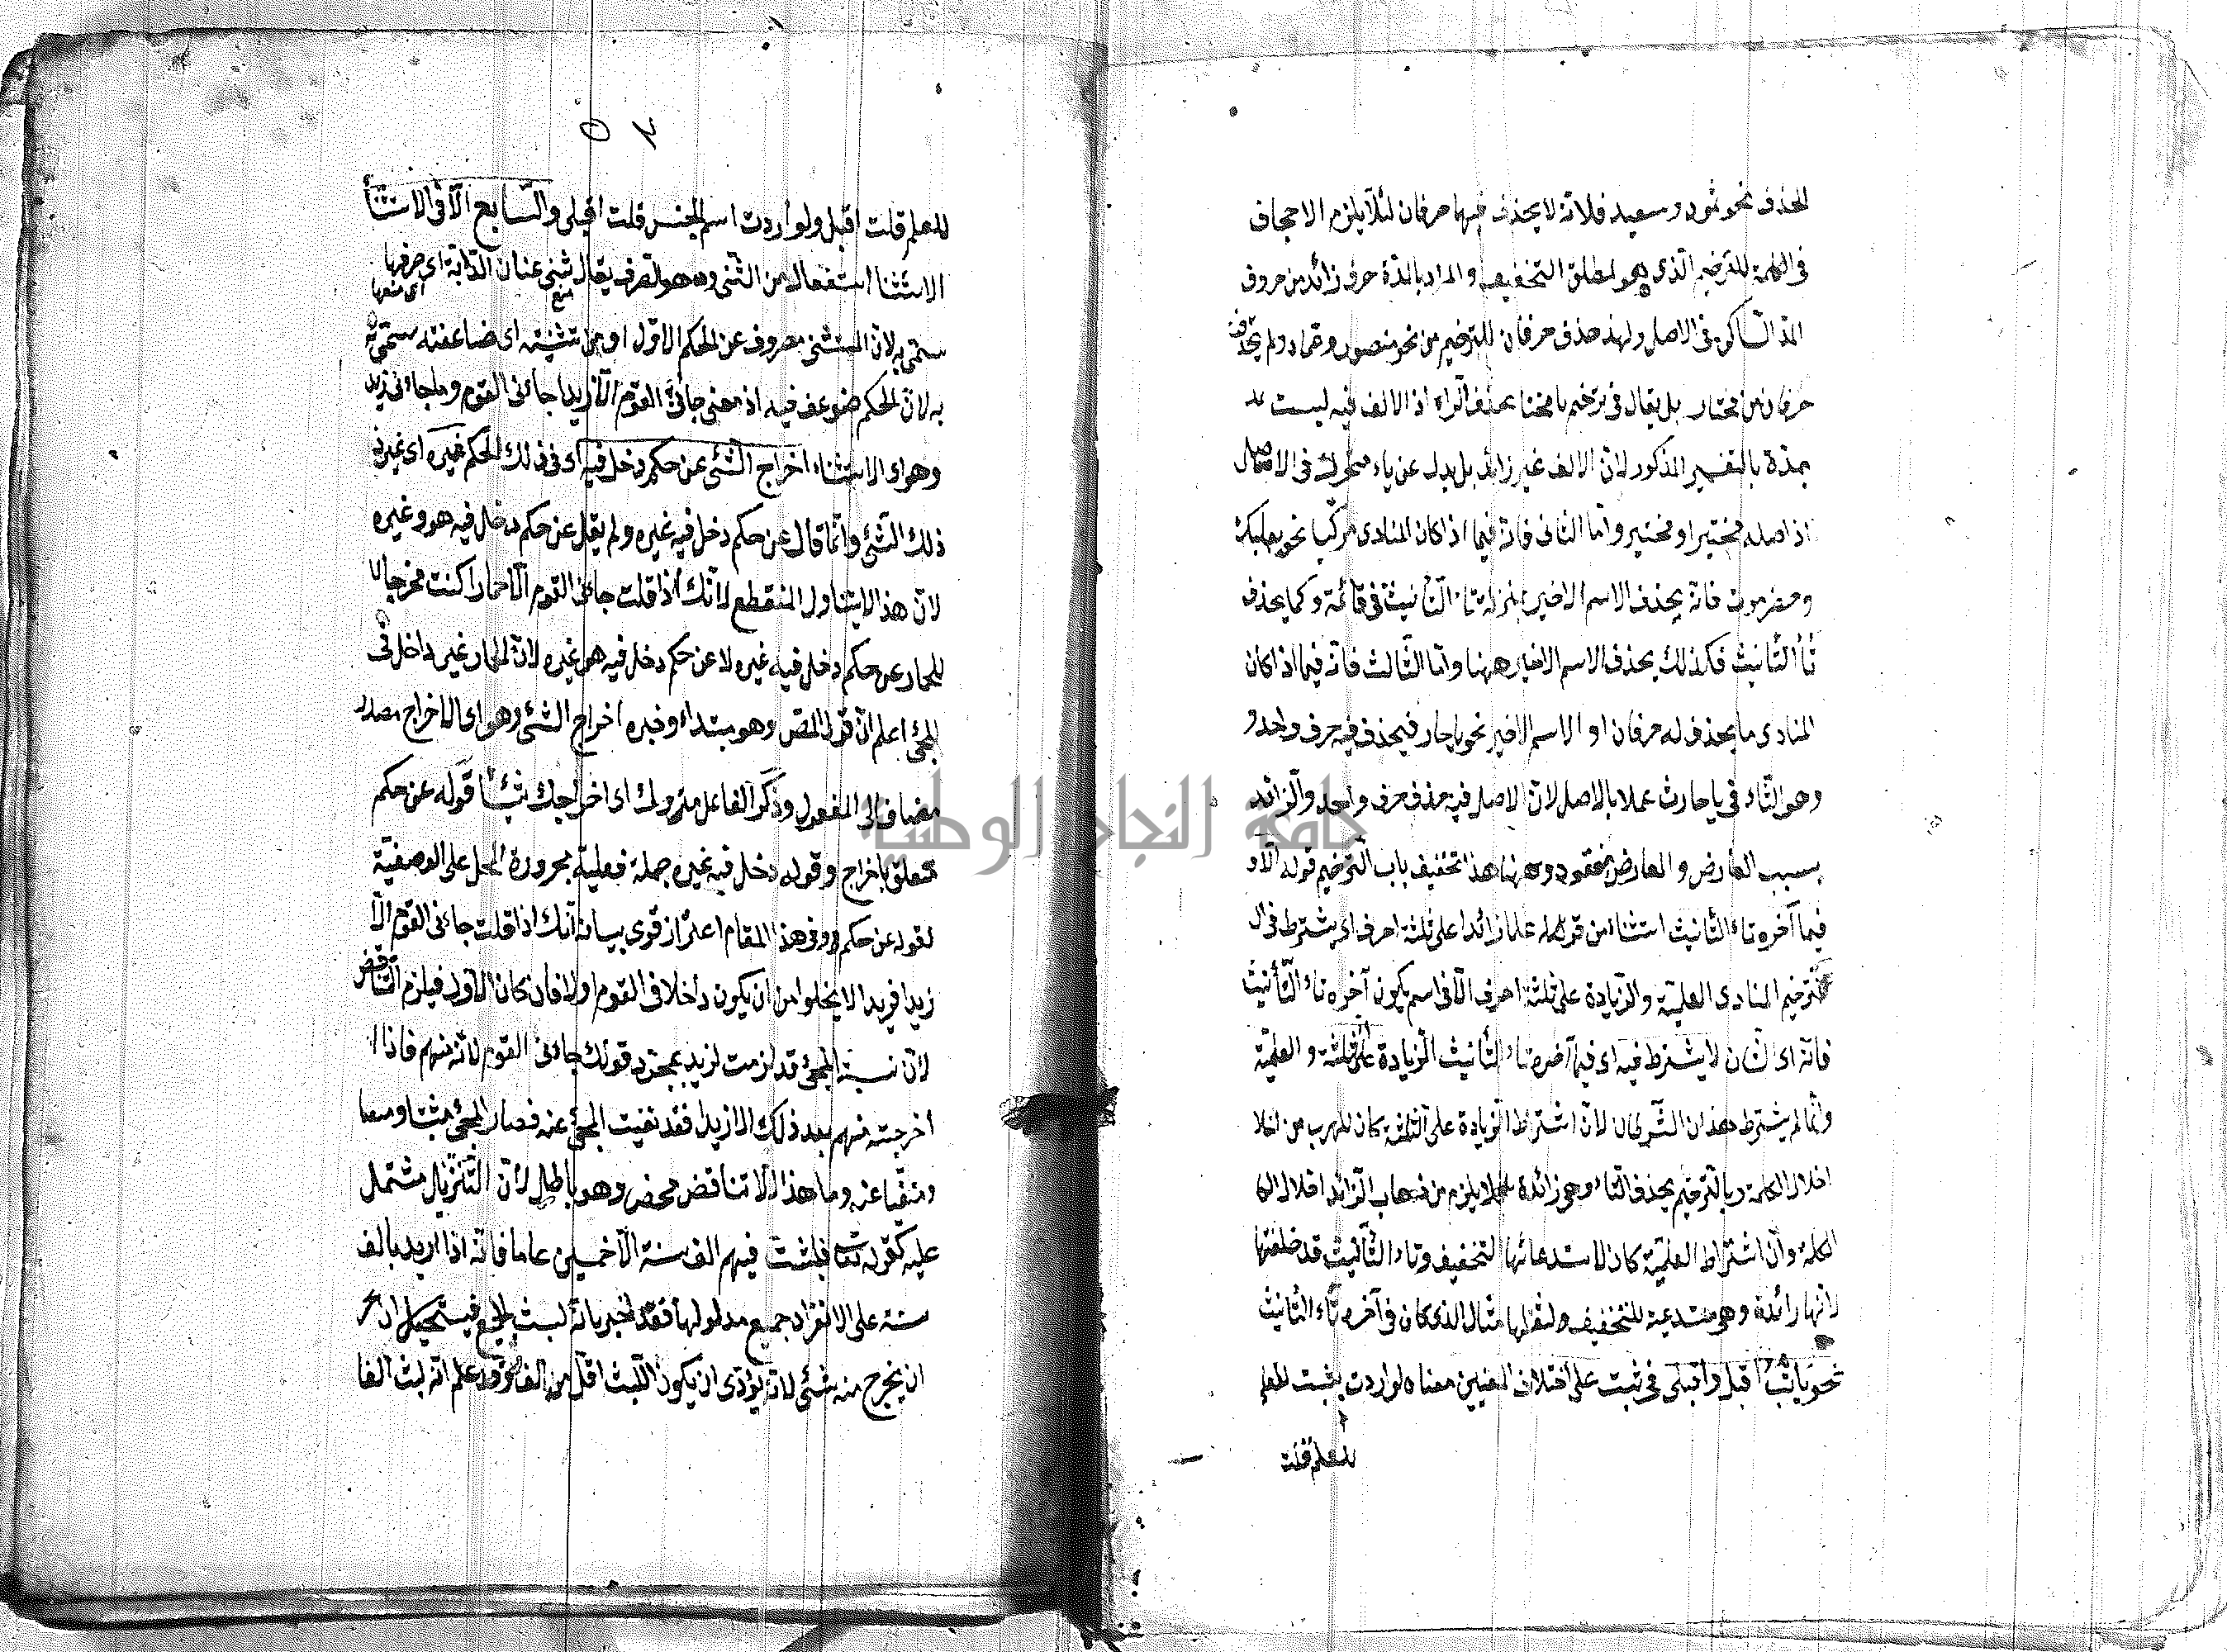 الحذف نحو ثمود وسعيد فلانه لا يحذف فيها حرفان لئلا يلزم الاحجاف
فى الكلمة للترخيم الذى هو لمطلق التخفيف والمراد بالمدة حرف زائد من حروف
المد الساكن فى الاصل ولهذ حذف حرفان للترخيم من نحو منصور وعماد ولم يحذف
حرفان من مختار بل يقال فى ترخيم يا مختا بحذف الراء اذ الالف فيه ليست
بمدة بالتفسير المذكور لان الالف غير زائد بل بدل عن ياء متحرك فى الاصل
اذ اصله مختير او مختير واما الثانى فانه فيما اذا كان المنادى مركبا نحو بعلبك
وحضرموت فانه يحذف الاسم الاخير بمنزلة تاء التأنيث فى قائمة وكما يحذف
تأ التأنيث فكذلك يحذف الاسم الاخير ههنا واما الثالث فانه فيما اذا كان
المنادى ما يحذف له حرفان او الاسم الاخير نحو يا حار فيحذف فيه حرف واحد و
وهو الثاء فى يا حارث عملا بالاصل لان الاصل فيه حذف حرف واحد والزائد
بسبب العارض والعارض مفقود وههنا هذا تخفيف باب الترخيم قوله الا و
فيما آخره تاء التأنيث استثناء من قوله علما زائدا على ثلثة احرف اى يشترط فى ال
لترخيم المنادى العلمية والزيادة على ثلثة احرف الا فى اسم يكون آخره تاء التأنيث
فانه اى الشان لا يشترط فيه اى فيما آخره تاء التأنيث الزيادة على ثلثة والعلمية
وانما لم يشترط هذان الشرطان لان اشتراط الزيادة على الثلثة كان للهرب من اخلا
اخلال الكلمة وبالترخيم يحذف التاء وهى زائدة فلا يلزم من ذهاب الزائد اخلال الكا
الكلمة وان اشتراط العلمية كان لاستدعائها التخفيف وتاء التأنيث قد خلفتها
لانها زائدة وهو مستدعية للتخفيف ولثقلها مثال الذى كان فى آخره تاء التأنيث
نحو يا ثب اقبل واقبلى فى ثبت على اختلاف المعنيين معناه لو اردت بثبت للعلم
للعلم قلت
٥٣
للعلم قلت اقبل ولو اردت اسم الجنس قلت اقبلى والسابع الا فى الاستثنأ
الاستثنا استفعال من الثنى وهو لصرف يقال ثنى عنان الدابة اى صرفها
منع
اى منعها
سمى به لان المستثنى مصروف عن الحكم الاول او من تثنيته اى ضاعفته سمى
به لان الحكم ضوعف فيه اذ معنى جائنى القوم الا زيدا جائنى القوم وما جائنى زيد
وهو اى الاستثناء اخراج الشئ عن حكم دخل فيه اى فى ذلك الحكم غيره اى غير
ذلك الشئ وانما قال عن حكم دخل فيه غيره ولم يقل عن حكم دخل فيه هو وغيره
لان هذا لا يتناول المنقطع لانك اذا قلت جائنى القوم الا حمارا كنت مخرجا ال
للحمار عن حكم دخل فيه غيره لا عن حكم دخل فيه هو غيره لان الحمار غير داخل فى
المجئ اعلم ان قول المص وهو مبتداء وخبره اخراج الشئ وهو اى الاخراج مصدر
مضاف الى المفعول وذكر الفاعل متروك اى اخراجك شيئا قوله عن حكم
متعلق باخراج وقوله دخل فيه غيره جملة فعلية مجرورة المحل على الوصفية
لقوله عن حكم وفى هذا المقام اعتراز قوى بيانه انك اذا قلت جاءنى القوم الا
زيدا فزيدا لا يخلوا من ان يكون داخلا فى القوم او لا فان كان الاول فيلزم التناقض
لان نسبة المجئ قد لزمت لزيد بمجرد قولك جائنى القوم لانه منهم فاذا ا
اخرجته منهم بعد ذلك الا زيدا فقد نفيت المجئ عنه فصار المجئ مثبتا ومنفيا
ومنفيا عنه وما هذا الا تناقض محض وهو باطل لان التنزيل مشتمل
عليه كقوله تعا فلبثت فيهم الف سنة الا خمسين عاما فانه اذا اريد بالف
سنة على الانفراد جميع مدلولها فقد اخبر بانه لبث الجميع فيستحيل ان
ان يخرج منه شئ لانه يؤدى ان يكون اللبث اقل من الف وقد علم انه لبث الفا
جامعة النجاح الوطنية